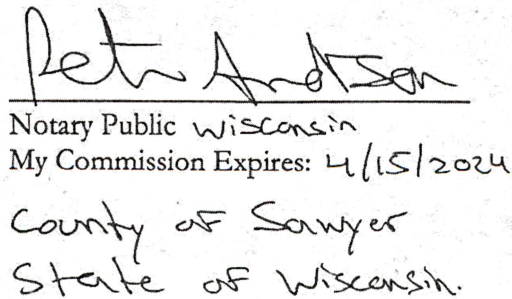 Peter Anderson
Notary Public Wisconsin
My Commission Expires: 4/15/2024
County of Sawyer
State of Wisconsin.